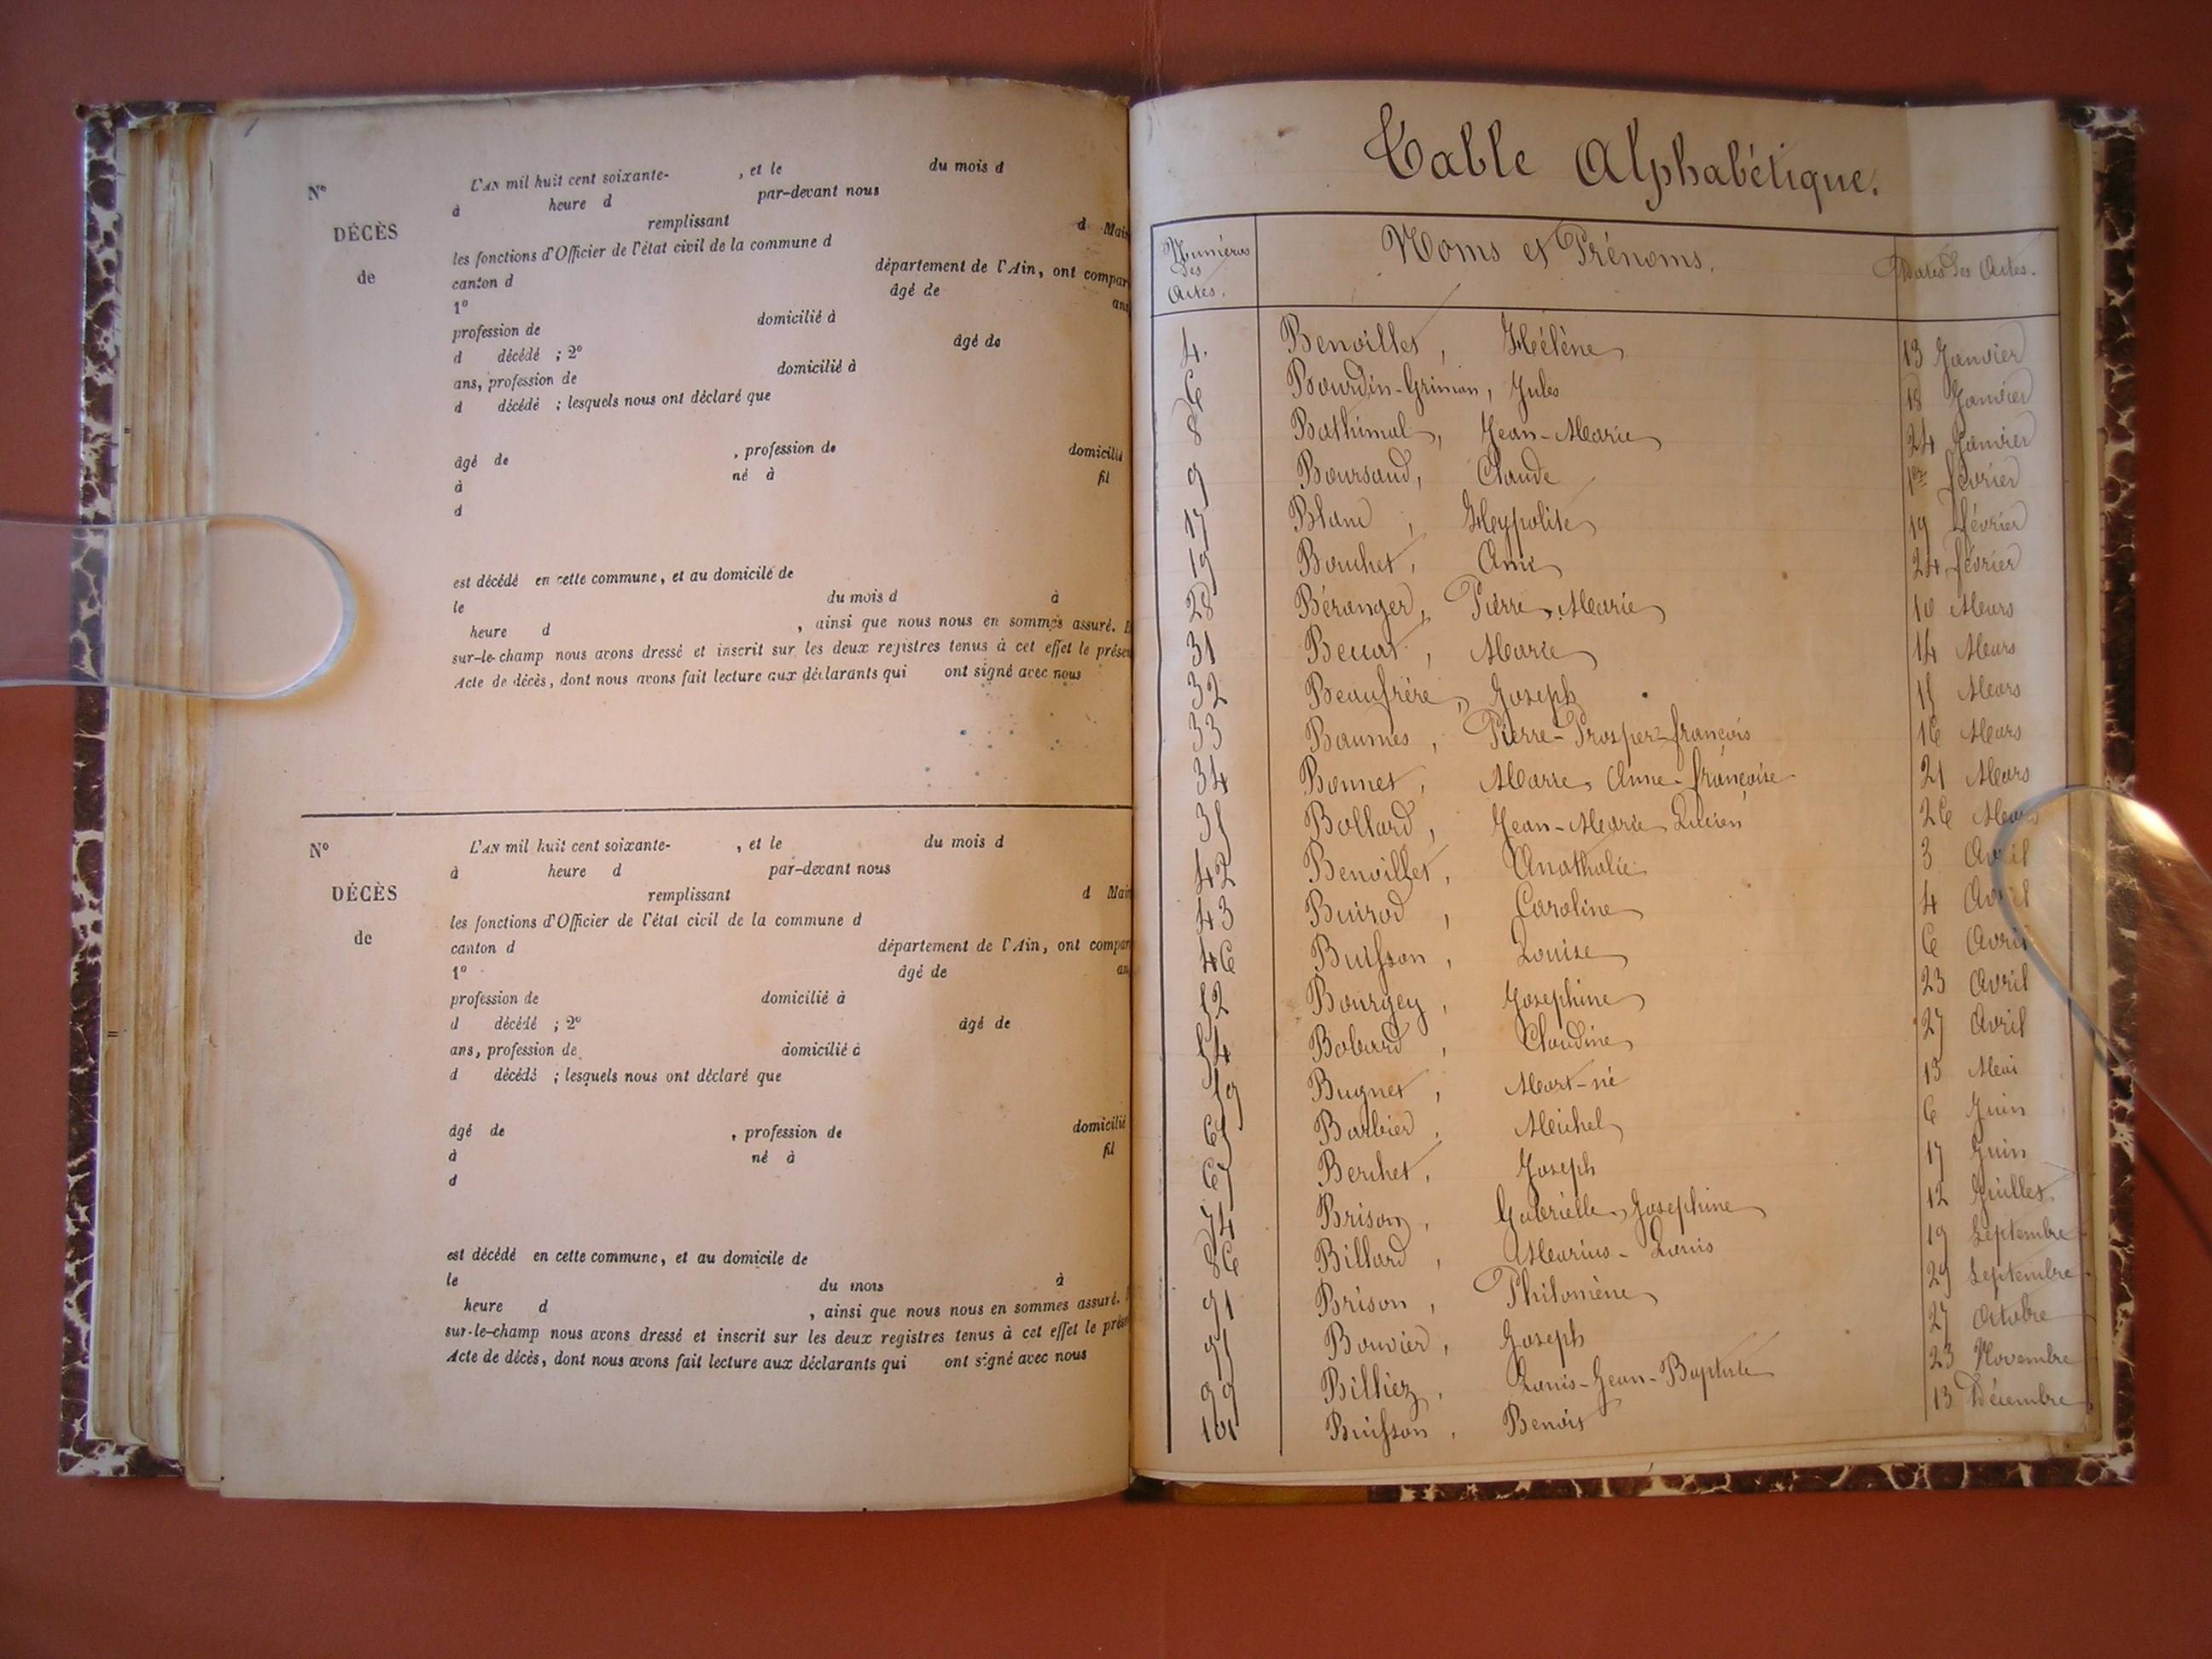 N° L'AN mil huit cent soixante- , et le du mois d
à heure d par-devant nous
DÉCÈS remplissant d Mai
les fonctions d'Officier de l'état civil de la commune d
de canton d département de l'Ain, ont compar
1° âgé de an
profession de domicilié à
d décédé ; 2° âgé de
ans, profession de domicilié à
d décédé ; lesquels nous ont déclaré que
âgé de , profession de domicilié
à né à fil
d
est décédé en cette commune, et au domicile de
le du mois d à
heure d , ainsi que nous nous en sommes assuré.
sur-le-champ nous avons dressé et inscrit sur les deux registres tenus à cet effet le prése
Acte de décès, dont nous avons fait lecture aux déclarants qui ont signé avec nous
N° L'AN mil huit cent soixante- , et le du mois d
à heure d par-devant nous
DÉCÈS remplissant d Mai
les fonctions d'Officier de l'état civil de la commune d
de canton d département de l'Ain, ont compar
1° âgé de an
profession de domicilié à
d décédé ; 2° âgé de
ans, profession de domicilié à
d décédé ; lesquels nous ont déclaré que
âgé de , profession de domicilié
à né à fil
d
est décédé en cette commune, et au domicile de
le du mois à
heure d , ainsi que nous nous en sommes assuré.
sur-le-champ nous avons dressé et inscrit sur les deux registres tenus à cet effet le prése
Acte de décès, dont nous avons fait lecture aux déclarants qui ont signé avec nous
Table Alphabétique.
Numéros des Actes. Noms et Prénoms. Dates des Actes.
4. Benoillet, Hélène 13 Janvier
6 Bourdin-Grimon, Jules 18 Janvier
8 Bathimal, Jean-Marie 24 Janvier
9 Boursaud, Claude 1er février
17 Blanc, Heypolite 19 février
19 Bouchet, Ami 24 février
28 Béranger, Pierre, Marie 10 Mars
31 Marie 14 Mars
32 Beaufrère, Joseph 15 Mars
33 Baumes, Pierre-Prosper-françois 16 Mars
34 Bonnet, Marie, Anne-françoise 21 Mars
35 Bollard, Jean-Marie Lucien 26 Mars
42 Benoillet, Anathalie 3 Avril
43 Buirod, Caroline 4 Avril
46 Buisson, Louise 6 Avril
52 Bourgey, Josephine 23 Avril
54 Bobard, Claudine 27 Avril
59 Bugnet, Mort-né 13 Mai
65 Barbier, Michel 6 Juin
67 Berchet, Joseph 17 Juin
74 Brison, Gabrielle, Josephine 12 Juillet
86 Billard, Marius-Louis 19 Septembre
91 Brison, Philomène 29 Septembre
95 Bouvier, Joseph 27 Octobre
99 Billiez, Louis-Jean-Baptiste 23 Novembre
101 Buisson, Benoit 13 Décembre